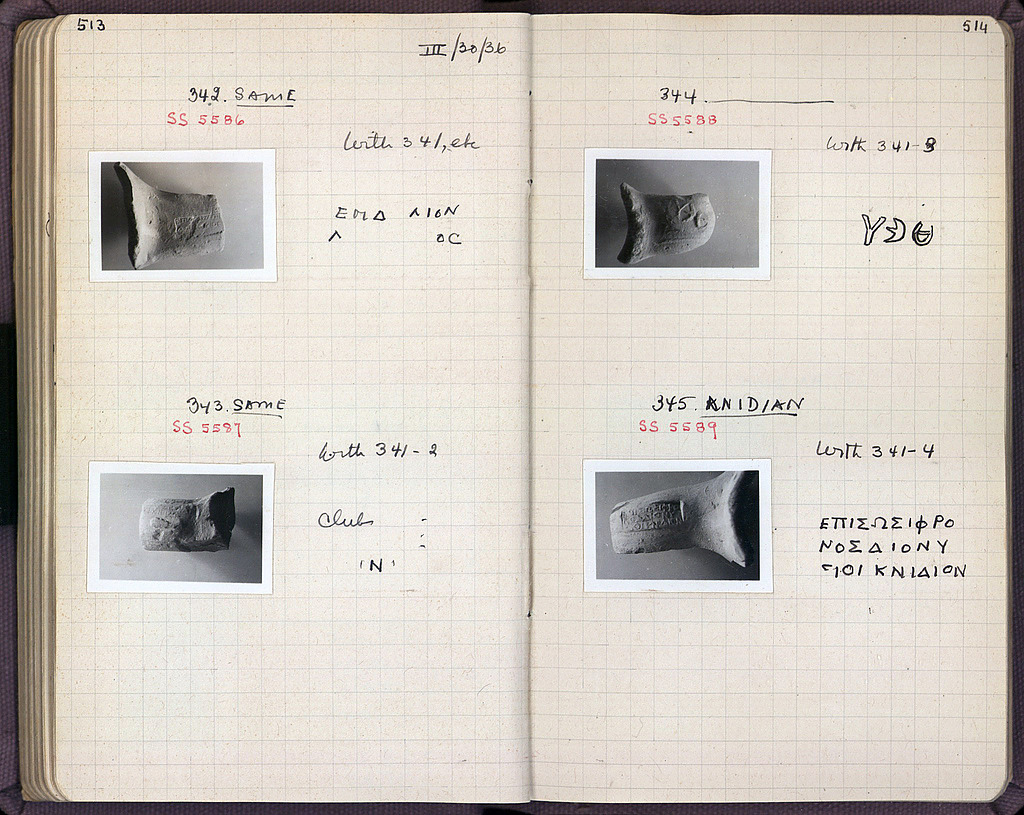 513
III/30/36
342. SAME
SS 5586
With 341, etc
ΕΠΔ ΛΙΟΝ
Λ ΟC
343. SAME
SS 5587
With 341-2
Club
'N'
514
344.
SS 5588
With 341-3
345. KNIDIAN
SS 5589
With 341-4
ΕΠΙΣΩΣΙΦΡΟ
ΝΟΣΔΙΟΝΥ
ΣΙΟΙ ΚΝΙΔΙΟΝ